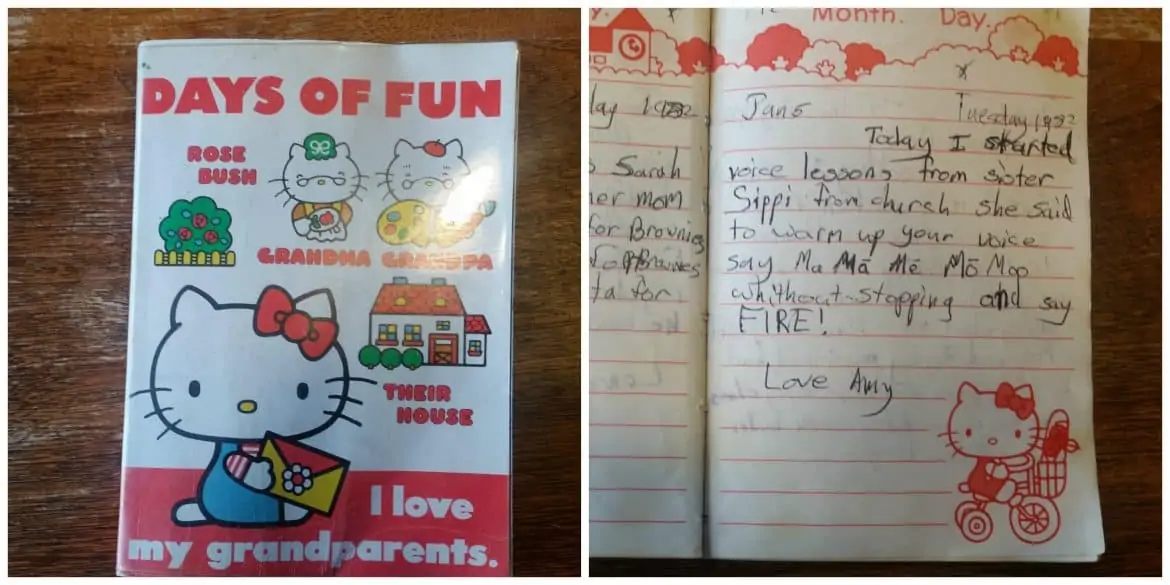 DAYS OF FUN
ROSE
BUSH
GRANDMA GRANDPA
THEIR
HOUSE
I love
my grandparents.
Month. Day.
Sarah
her mom
for Brownies
Brownies
ta for
Jan 5 Tuesday 1982
Today I started
voice lessons from sister
Sippi from church she said
to warm up your voice
say Ma Mā Mē Mō Moo
whithout stopping and say
FIRE!
Love Amy